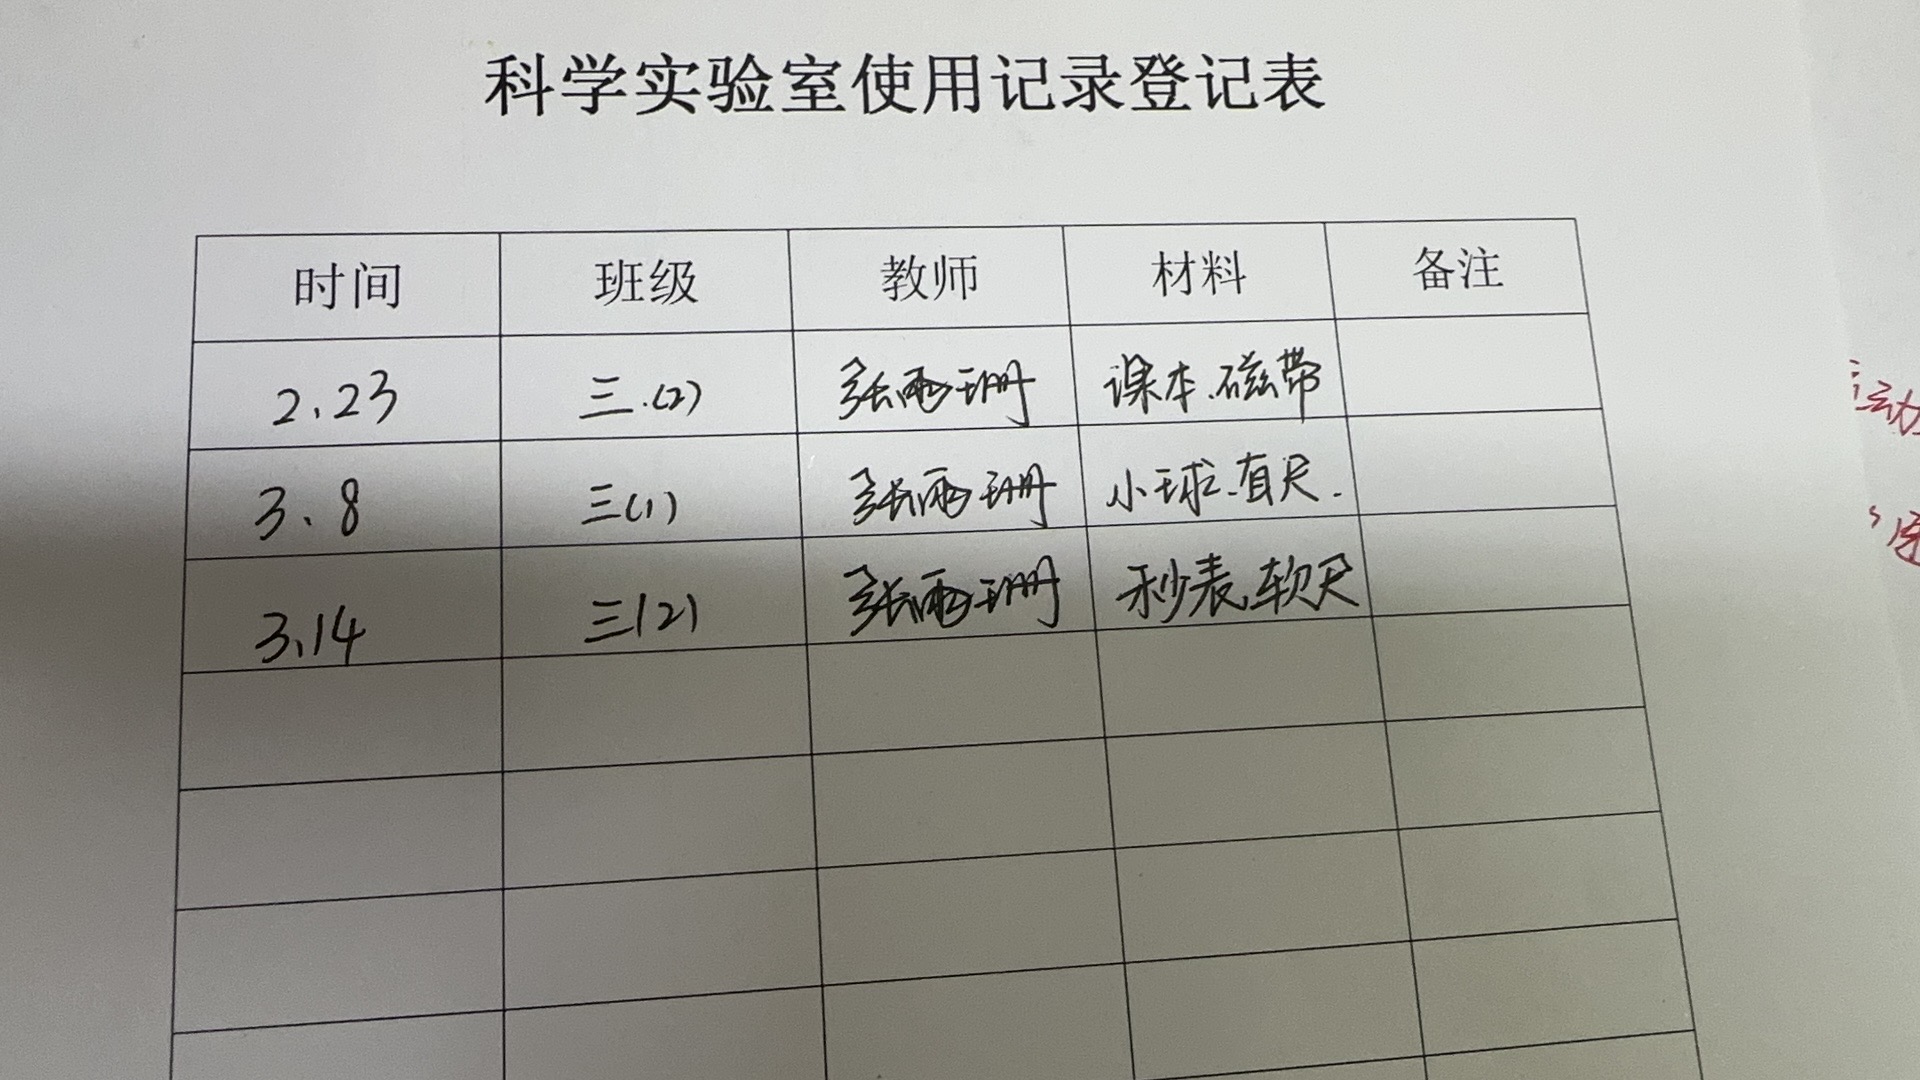 科学实验室使用记录登记表
时间 班级 教师 材料 备注
2.23 三.(2) 张雨珊 课本.磁带
3.8 三(1) 张雨珊 小球.直尺.
3.14 三(2) 张雨珊 秒表、软尺
运动